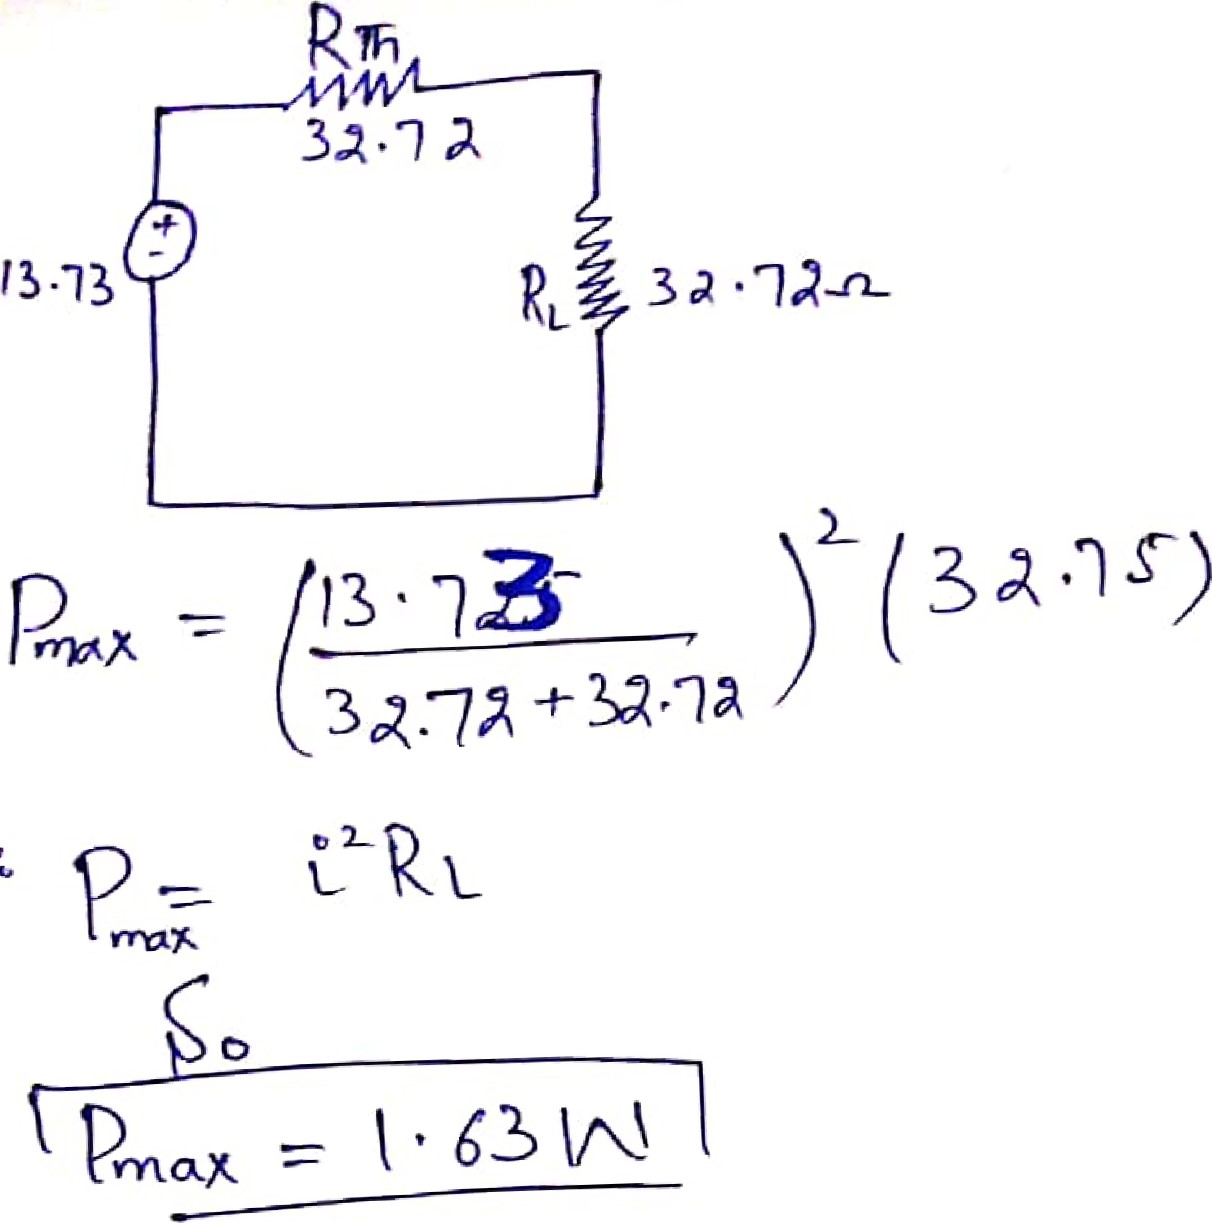 RTh
32.72
+
-
13.73
RL 32.72Ω
Pmax = (13.73 / 32.72+32.72)² (32.75)
Pmax = i²RL
So
Pmax = 1.63W